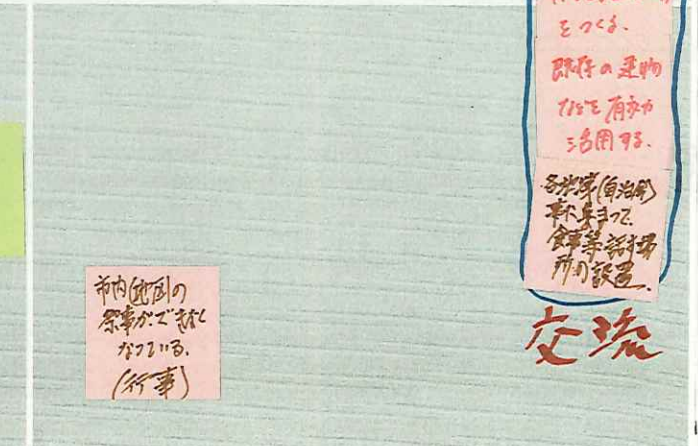 をつくる。
既存の建物
などを有効
活用する。
各地域(自治会)
事に集まって
食事等話す場
所の設置。
交流
市内(地区)の
祭事ができなく
なっている。
(行事)